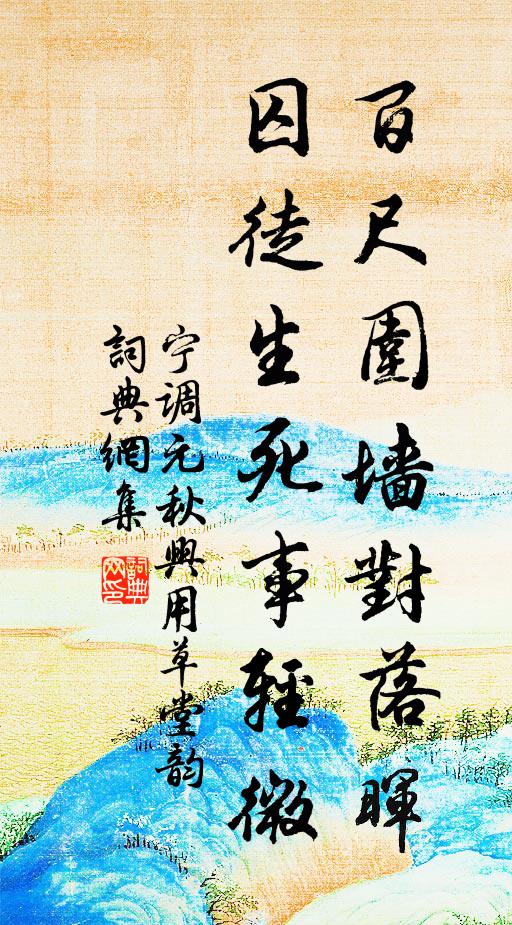 百尺圍墙對落暉
囚徒生死事輕微
宁调元秋興用草堂韵
詞典網集
詞典网印